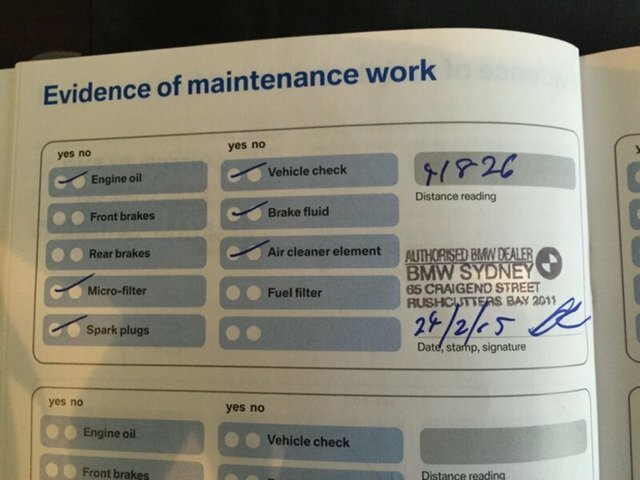 Evidence of maintenance work
yes no
Engine oil
Front brakes
Rear brakes
Micro-filter
Spark plugs
yes no
Vehicle check
Brake fluid
Air cleaner element
Fuel filter
41826
Distance reading
AUTHORISED BMW DEALER
BMW SYDNEY
65 CRAIGEND STREET
RUSHCUTTERS BAY 2011
24/2/15
Date, stamp, signature
yes no
Engine oil
Front brakes
yes no
Vehicle check
Distance reading